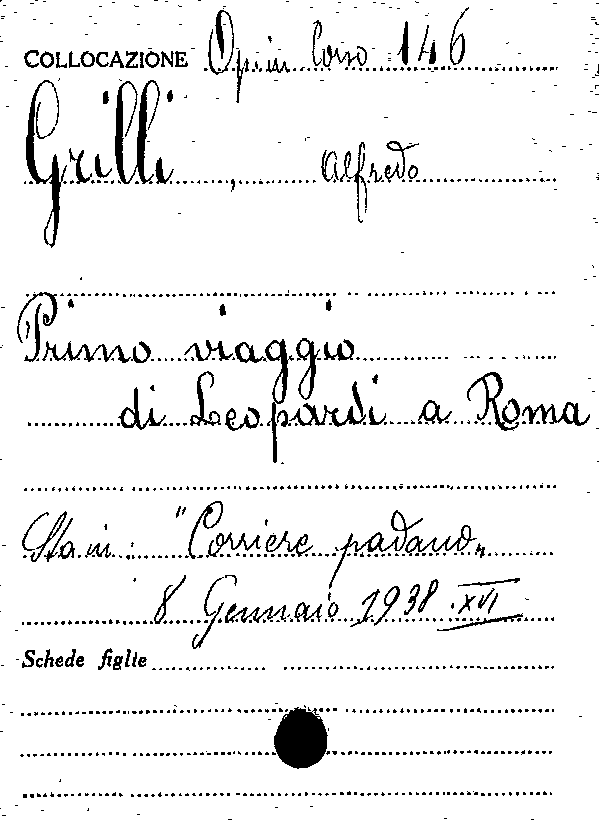 COLLOCAZIONE Op. in Corso 146
Grilli, Alfredo
Primo viaggio
di Leopardi a Roma
Sta in: "Corriere padano„
8 Gennaio 1938 XVI
Schede figlie